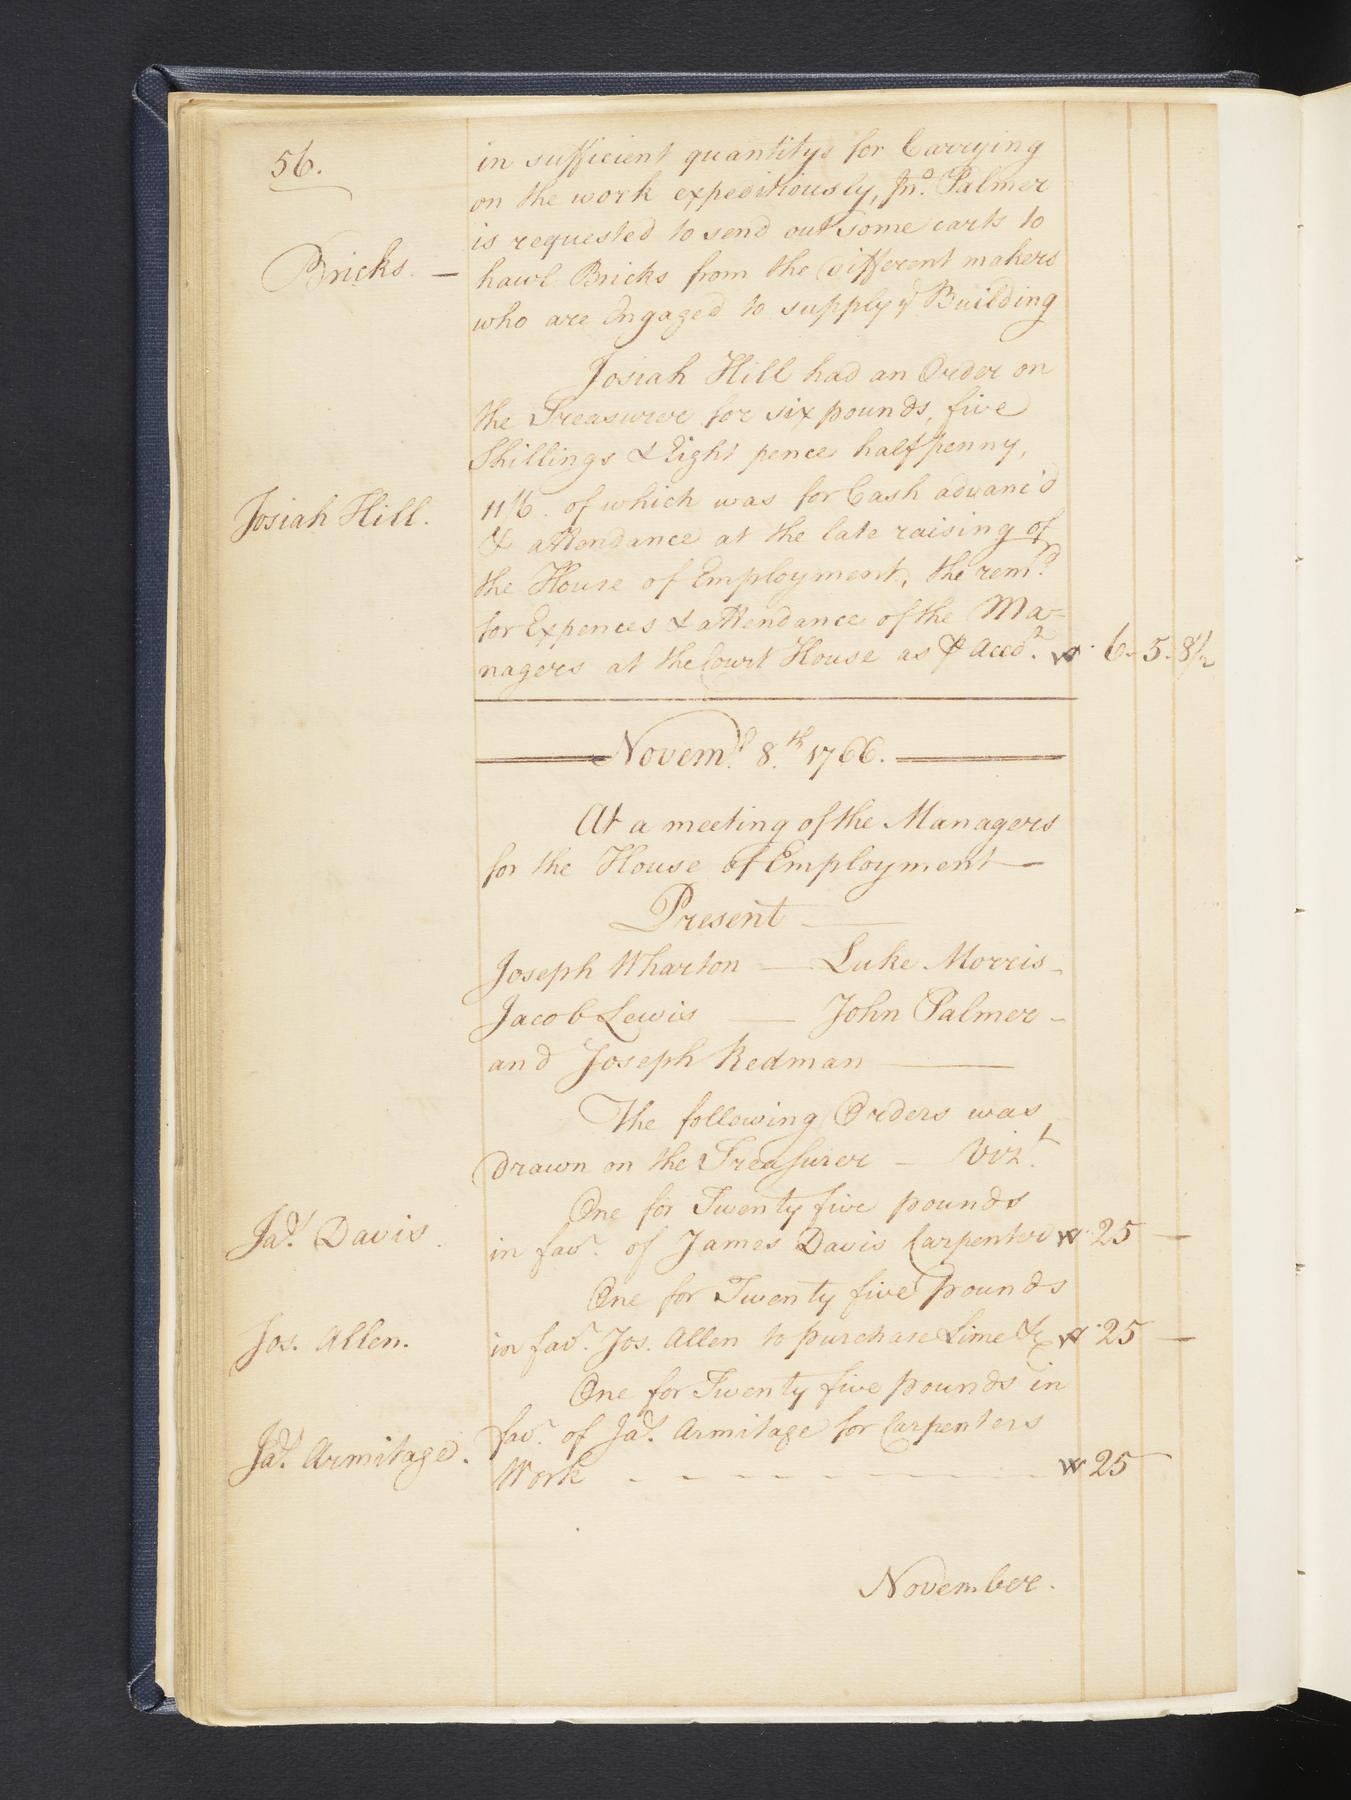 56.
in sufficient quantitys for Carrying
on the work expeditiously, Jno. Palmer
is requested to send out some carts to
Bricks. — hawl Bricks from the different makers
who are Engaged to supply ye Building
Josiah Hill had an Order on
the Treasurer for six pounds, five
Shillings & Eight pence halfpenny,
Josiah Hill. 11/6. of which was for Cash advanc'd
& attendance at the late raising of
the House of Employment, the remd.
for Expences & attendance of the Ma-
nagers at the Court House as ⅌ Acco.t 6 - 5 - 8½
Novemr. 8.th 1766.
At a meeting of the Managers
for the House of Employment —
Present —
Joseph Wharton — Luke Morris -
Jacob Lewis — John Palmer -
and Joseph Redman —
The following Orders was
drawn on the Treasurer — Vizt.
One for Twenty five pounds
Jas. Davis. in favr. of James Davis Carpenter 25 —
One for Twenty five pounds
Jos. Allen. in favr. Jos. Allen to purchase Lime &c 25 —
One for Twenty five pounds in
favr. of Jas. Armitage for Carpenters
Jas. Armitage. Work - - - - - - - 25 —
November.